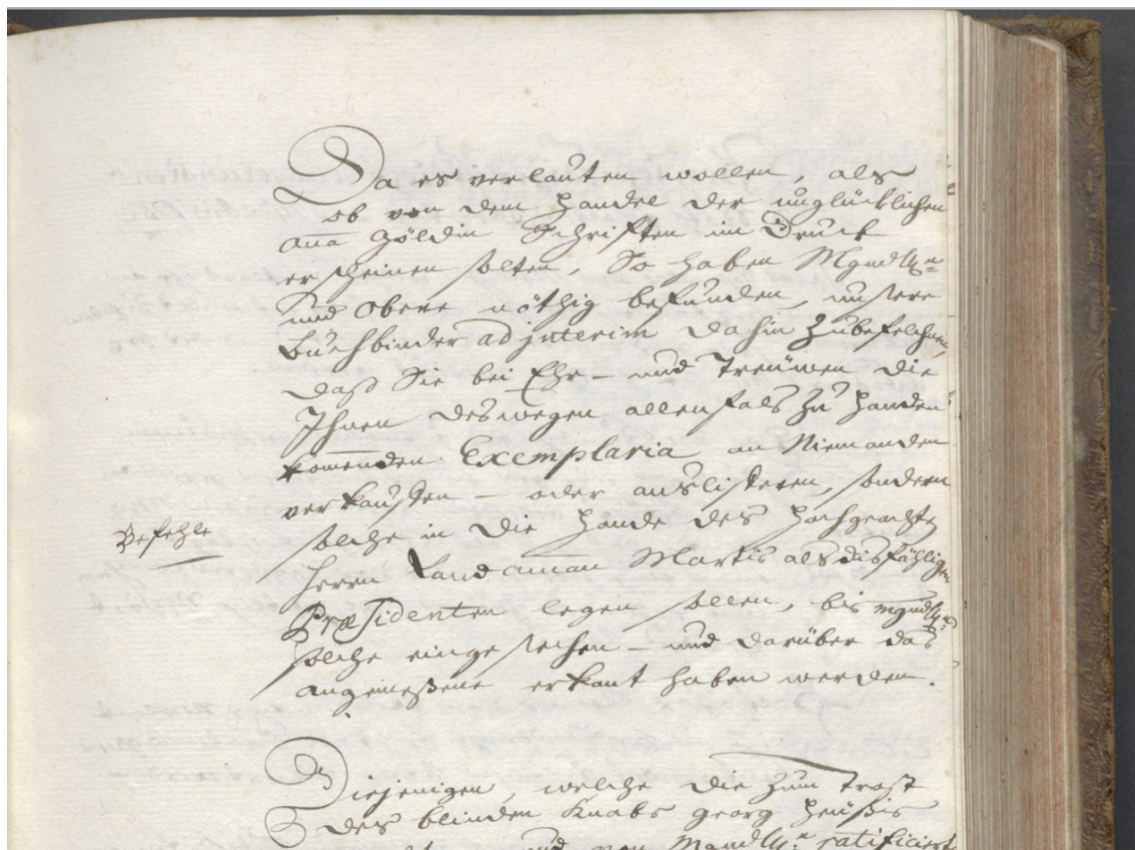 Da es verlauten wollen, als
ob von dem Handel der unglücklichen
Aña Göldin Schrifften im Druck
erscheinen solten, So haben Mgndh:
und Obere nöthig befunden, unsere
Buchbinder ad jnterim dahin zubefelchnen,
daß Sie bei Ehr- und Treüwen die
Ihnen deswegen allenfals zu Handen
kom̅enden Exemplaria an Niemanden
verkauffen - oder auslifferen, sondern
Befehle
solche in die Hände des Hochgeachten
Herrn Landam̅an Martis als disfähligen
Præsidenten legen sollen, bis mgndh:
solche eingesechen - und darüber das
angemeßene erkant haben werden.
Diejenigen, welche die zum Trost
des blinden Knabs Georg Heüßis
und von Mgndh: ratificiert